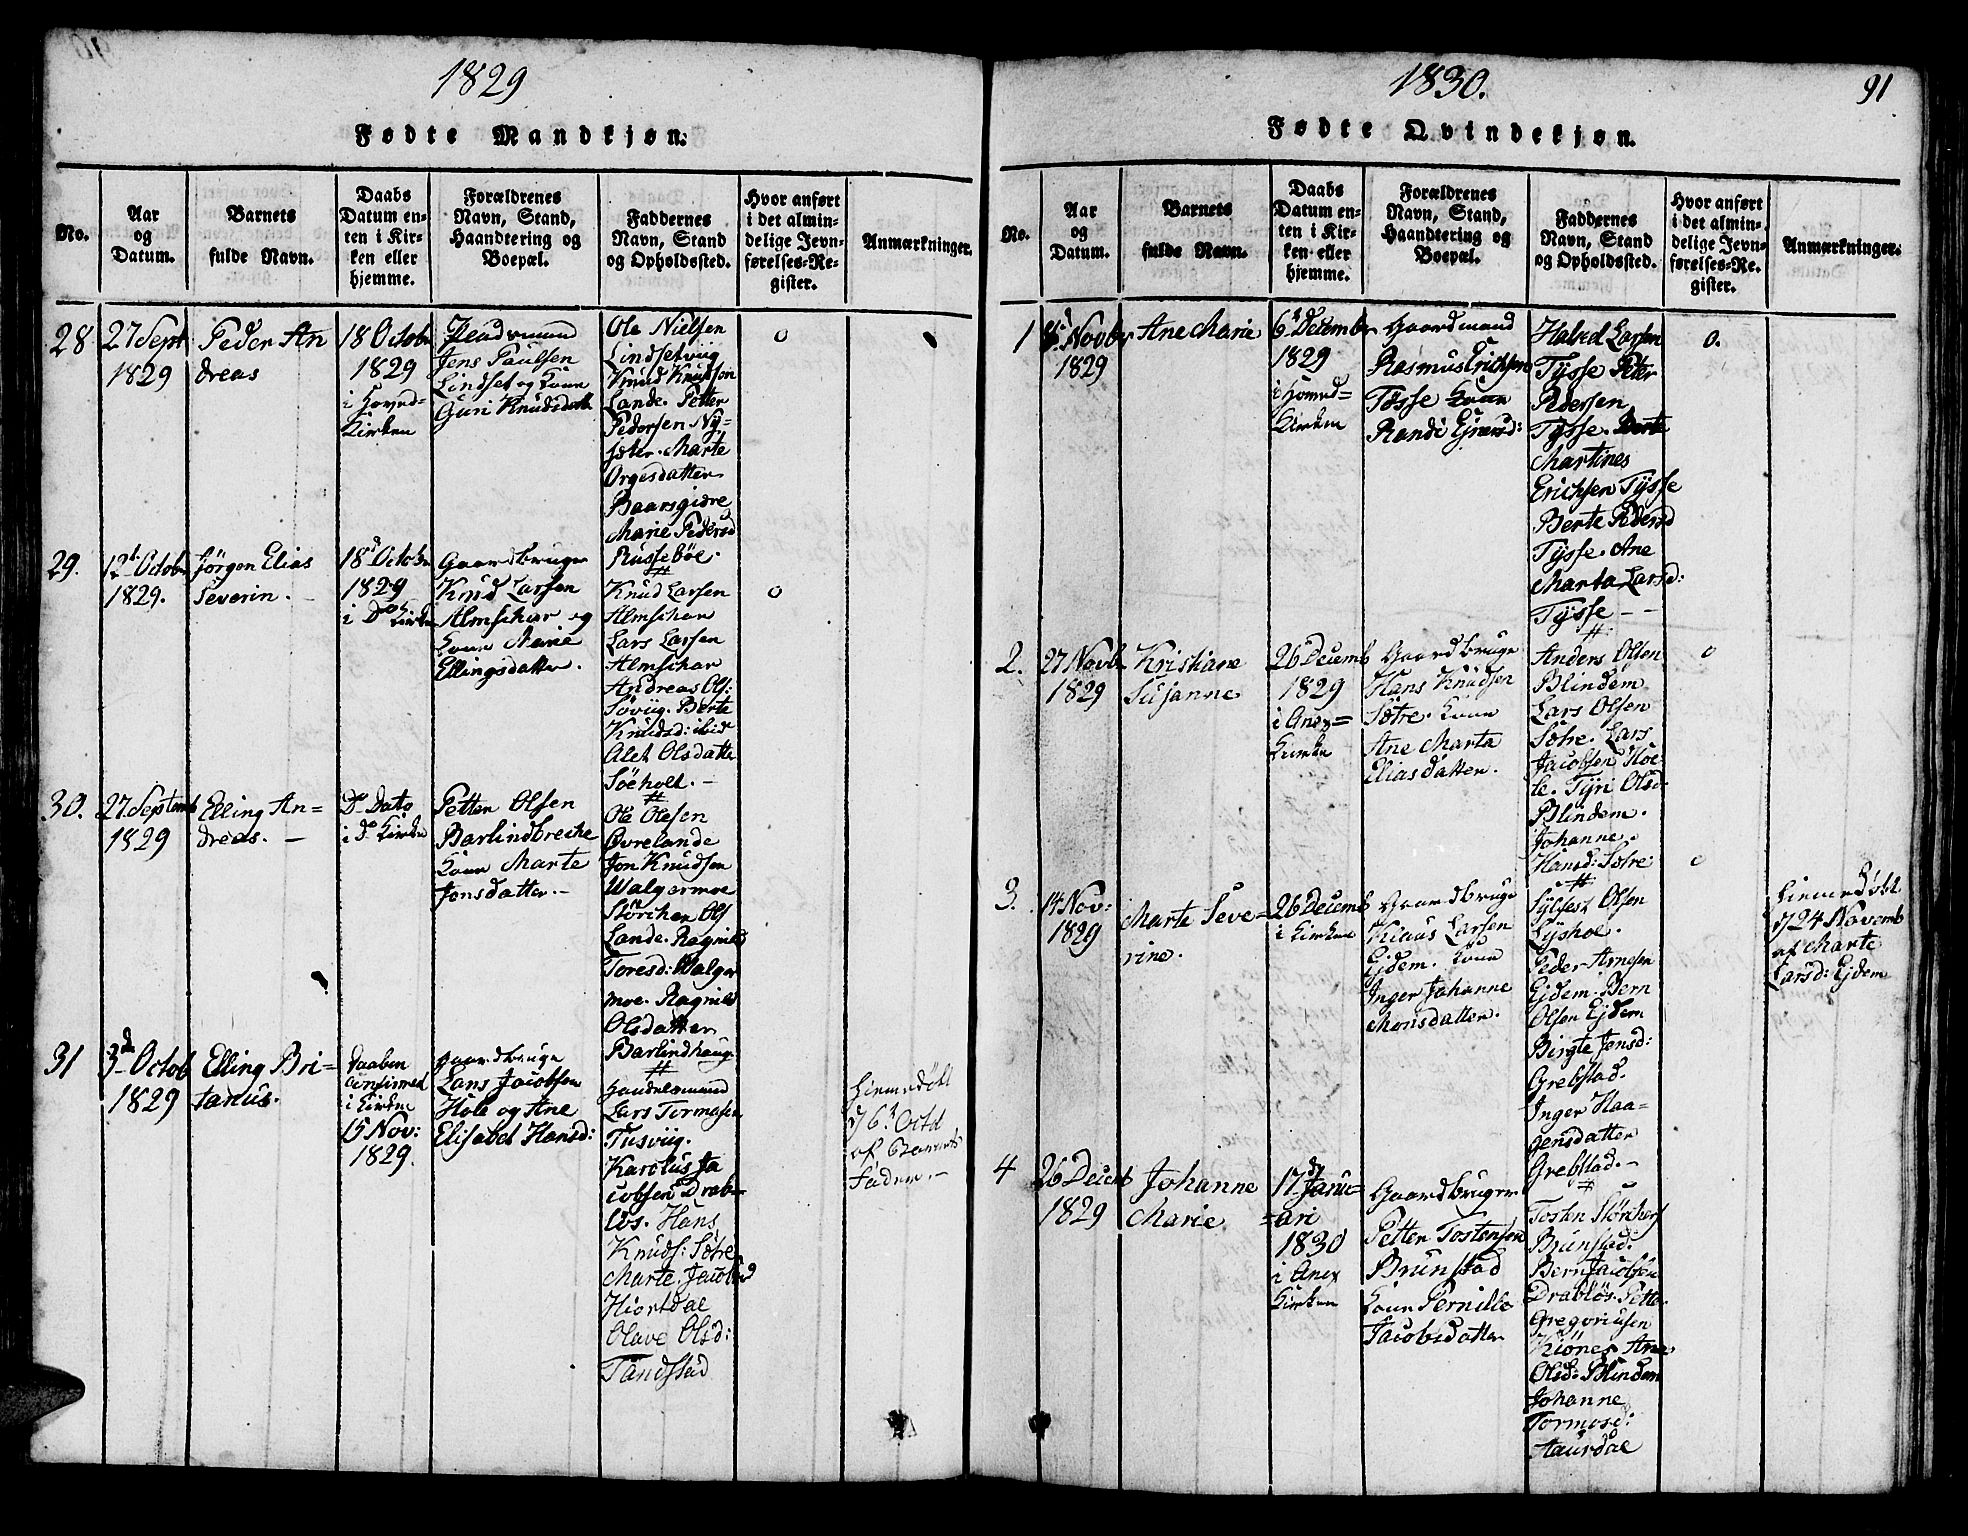 1829
Fødte Mandkjøn.
No.
Aar
og
Datum.
Barnets
fulde Navn.
Daabs
Datum en-
ten i Kir-
ken eller
hjemme.
Forældrenes
Navn, Stand,
Haandtering og
Boepæl.
Faddernes
Navn, Stand
og Opholdssted.
Hvor anført
i det almin-
delige Jevn-
førelses-Re-
gister.
Anmærkninger.
28
27 Sept
1829
Peder An
dreas
18 Octobr
1829
i Hoved-
Kirken
Jens Paulsen
Lindset og Kone
Guri Knudsdatt
Ole Nielsen
Lindsetviig
Knud Knudson
Lande. Petter
Pedersen Ny-
sæter. Marte
Orgesdatter
Baarsgidre
Marie Pedersd
Russebøe.
o
29.
12t Octobr
1829.
Jørgen Elias
Severin.
18d Octobr
1829
i Do Kirken
Gaardbruger
Knud Larsen
Almschar og
Kone Marie
Ellingsdatter.
Knud Larsen
Almschar
Lars Larsen
Almschar
Andreas Ols:
Søviig. Berte
Knudsd: ibid
Alet Olsdatte
Søeholt.
o
30.
27 Septemb
1829
Elling An=
dreas.
Do Dato
i do Kirken
Petter Olsen
Barlindbreche
Kone Marte
Jonsdatter.
Ole Olesen
Øvrelande
Jon Knudsen
Walgermoe
Størcher Ols
Lande. Ragnild
Toresd: Walger
moe. Ragnild
Olsdatter
Barlindhaug
31
3d Octob
1829
Elling Bri=
tanus.
Daaben
confirmed
i Kirken
15 Nov:
1829.
Gaardbruger
Lars Jacobsen
Hole og Ane
Elisabet Hansd:
Lars Tormasen
Tusviig.
Karolus Ja
cobsen Drab=
løs. Hans
Knuds: Sætre
Marte Jacobsd
Hiortdal
Olave Olsd:
Tandstad
Hiemedøbt
d 6t Octb
af Barnets
Fader.
1830.
91
Fødte Qvindekjøn.
No.
Aar
og
Datum.
Barnets
fulde Navn.
Daabs
Datum en-
ten i Kir-
ken eller
hjemme.
Forældrenes
Navn, Stand,
Haandtering og
Boepæl.
Faddernes
Navn, Stand
og Opholdssted.
Hvor anført
i det almin-
delige Jevn-
førelses-Re-
gister.
Anmærkninger.
1
Novbr
1829
Ane Marie
6t December
1829
i Hoved=
Kirken
Gaardmand
Rasmus Erichsen
Tøsse Kone
Randi Ejnersd:
Halvd Larsen
Tysse Peter
Pedersen
Tysse. Berte
Martines
Erichsen Tysse
Berte Pedersd
Tysse. Ane
Marta Larsd:
Tysse
o.
2.
27 Novb
1829
Kristiane
Susanne
26 Decemb
1829
i Anex=
Kirken
Gaardbruger
Hans Knudsen
Søtre. Kone
Ane Marta
Eliasdatter.
Anders Olsen
Blindem
Lars Olsen
Søtre. Lars
Jacobsen Hoe
le. Tyri Olsd
Blindem.
Johanne
Hansd: Søtre:
o
3.
14 Nov:
1829
Marte Seve=
rine.
26 Decemb
i Kirken
Gaardbruger
Klaus Larsen
Ejdem. Kone
Inger Johanne
Monsdatter.
Sylfest Olsen
Lyshoe.
Peder Arnesen
Ejdem. Bern
Olsen Ejdem
Birgte Jensd:
Grebstad.
Inger Haa=
gensdatter
Grebstad.
o
Hiemedøbt
d 24 Novemb
af Marte
Larsd: Ejdem
4
26 Decemb
1829
Johanne
Marie
17d Janu=
=ari
1830
i Anex
Kirken
Gaardbruger
Petter Tostensen
Brunstad
Kone Pernille
Jacobsdatter
Tosten Størchers
Brunstad.
Bern Jacobsen
Drabløs. Pette
Gregoriusen
Kiønes Ane
Olsd: Blindem
Johanne
Tormosd:
Aaursdal